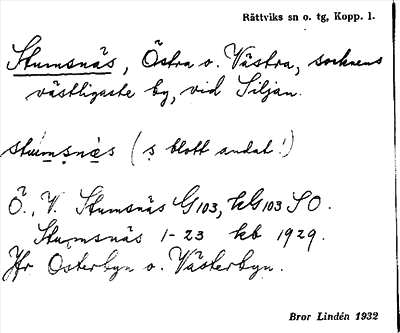 Rättviks sn o. tg, Kopp. l.
Stumsnäs, Östra o. Västra, socknens
västligaste by, vid Siljan.
stumsnæs (s blott andat!)
Ö., V. Stumsnäs G103, kG103 SO.
Stumsnäs 1-23 kb 1929.
Jfr Österbyn o. Västerbyn.
Bror Lindén 1932